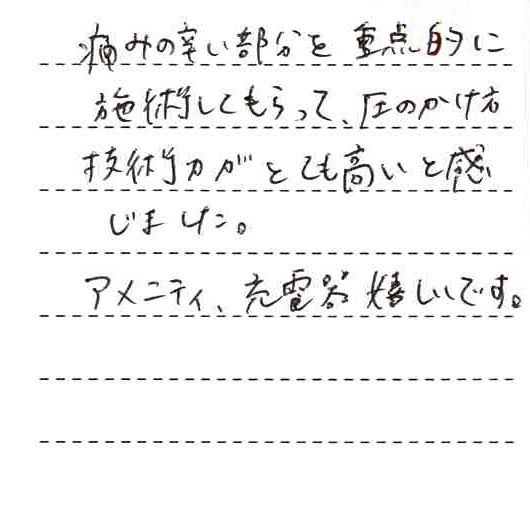 痛みの辛い部分を重点的に
施術してもらって、圧のかけ方
技術力がとても高いと感
じました。
アメニティ、充電器嬉しいです。